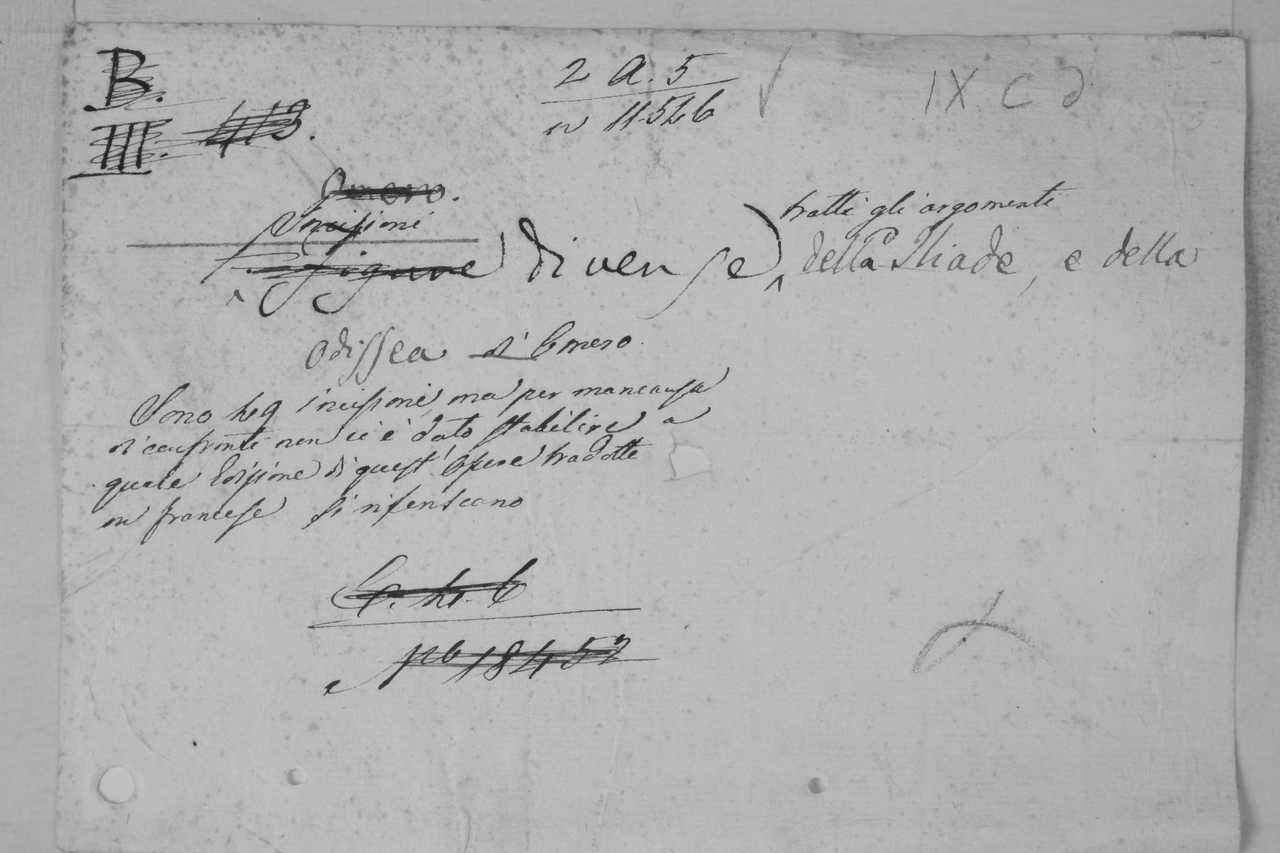 B. 2 A. 5 IX C d
III. 413. n 11526
Omero.
Incisioni tratti gli argomenti
Figure diverse della Iliade, e della
Odissea d'Omero.
Sono incisioni, ma per mancanza
di confronti non ci è dato stabilire a
quale Edizione di quest'Opere tradotte
in francese si riferiscano
18452